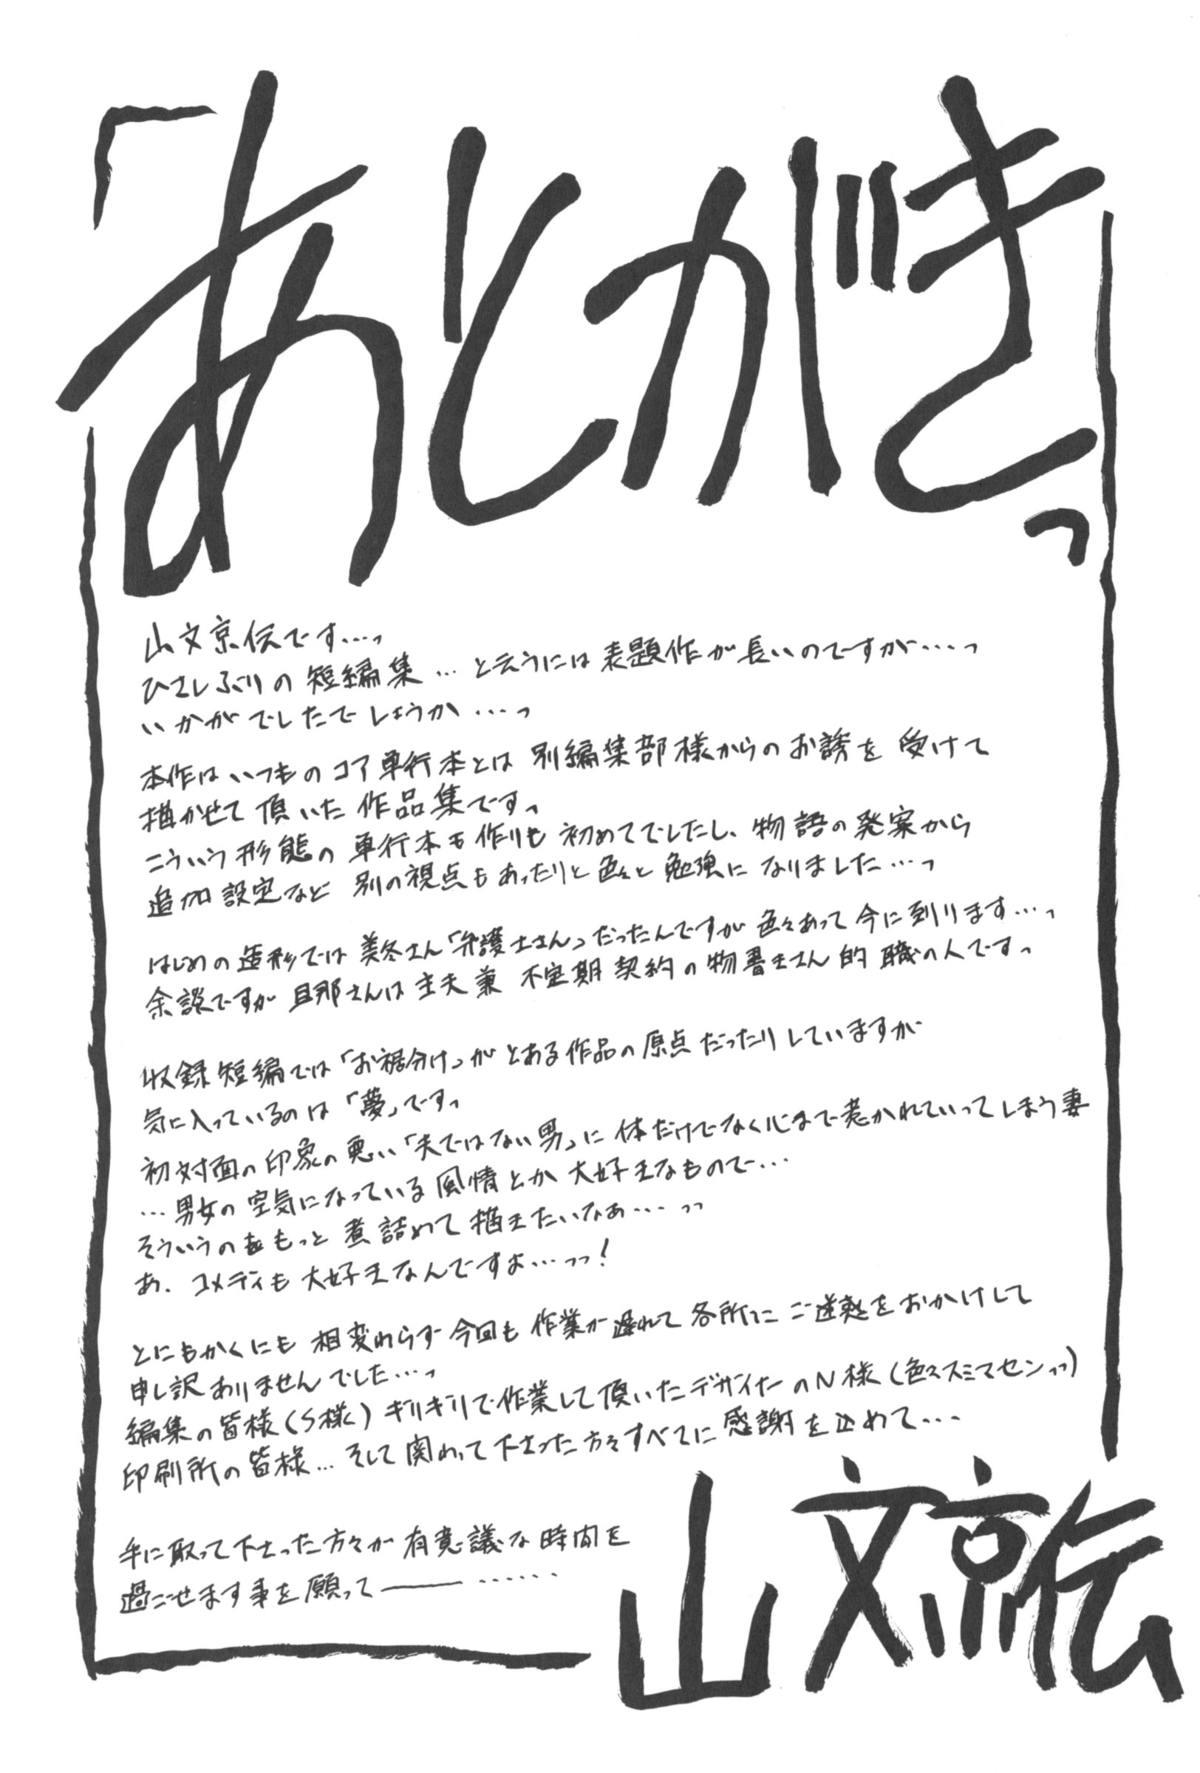 「あとがきっ」
山文京伝です…っ
ひさしぶりの短編集…と云うには表題作が長いのですが…っ
いかがでしたでしょうか…っ
本作はいつものコア単行本とは別編集部様からのお誘を受けて
描かせて頂いた作品集ですっ
こういう形態の単行本も作りも初めてでしたし、物語の発案から
追加設定など別の視点もあったりと色々と勉強になりました…っ
はじめの造形では美冬さん「弁護士さん」だったんですが色々あって今に到ります…っ
余談ですが旦那さんは主夫兼不定期契約の物書きさん的職の人ですっ
収録短編では「お裾分け」がとある作品の原点だったりしていますが
気に入っているのは「夢」ですっ
初対面の印象の悪い「夫ではない男」に体だけでなく心まで惹かれていってしまう妻
…男女の空気になっている風情とか大好きなもので…
そういうのをもっと煮詰めて描きたいなぁ…っっ
あ、コメディも大好きなんですよ…っっ!
とにもかくにも相変わらず今回も作業が遅れて各所にご迷惑をおかけして
申し訳ありませんでした…っ
編集の皆様(S様)ギリギリで作業して頂いたデザイナーのN様(色々スミマセンっっ)
印刷所の皆様…そして関わって下さった方々すべてに感謝を込めて…
手に取って下さった方々が有意義な時間を
過ごせます事を願って――……
山文京伝